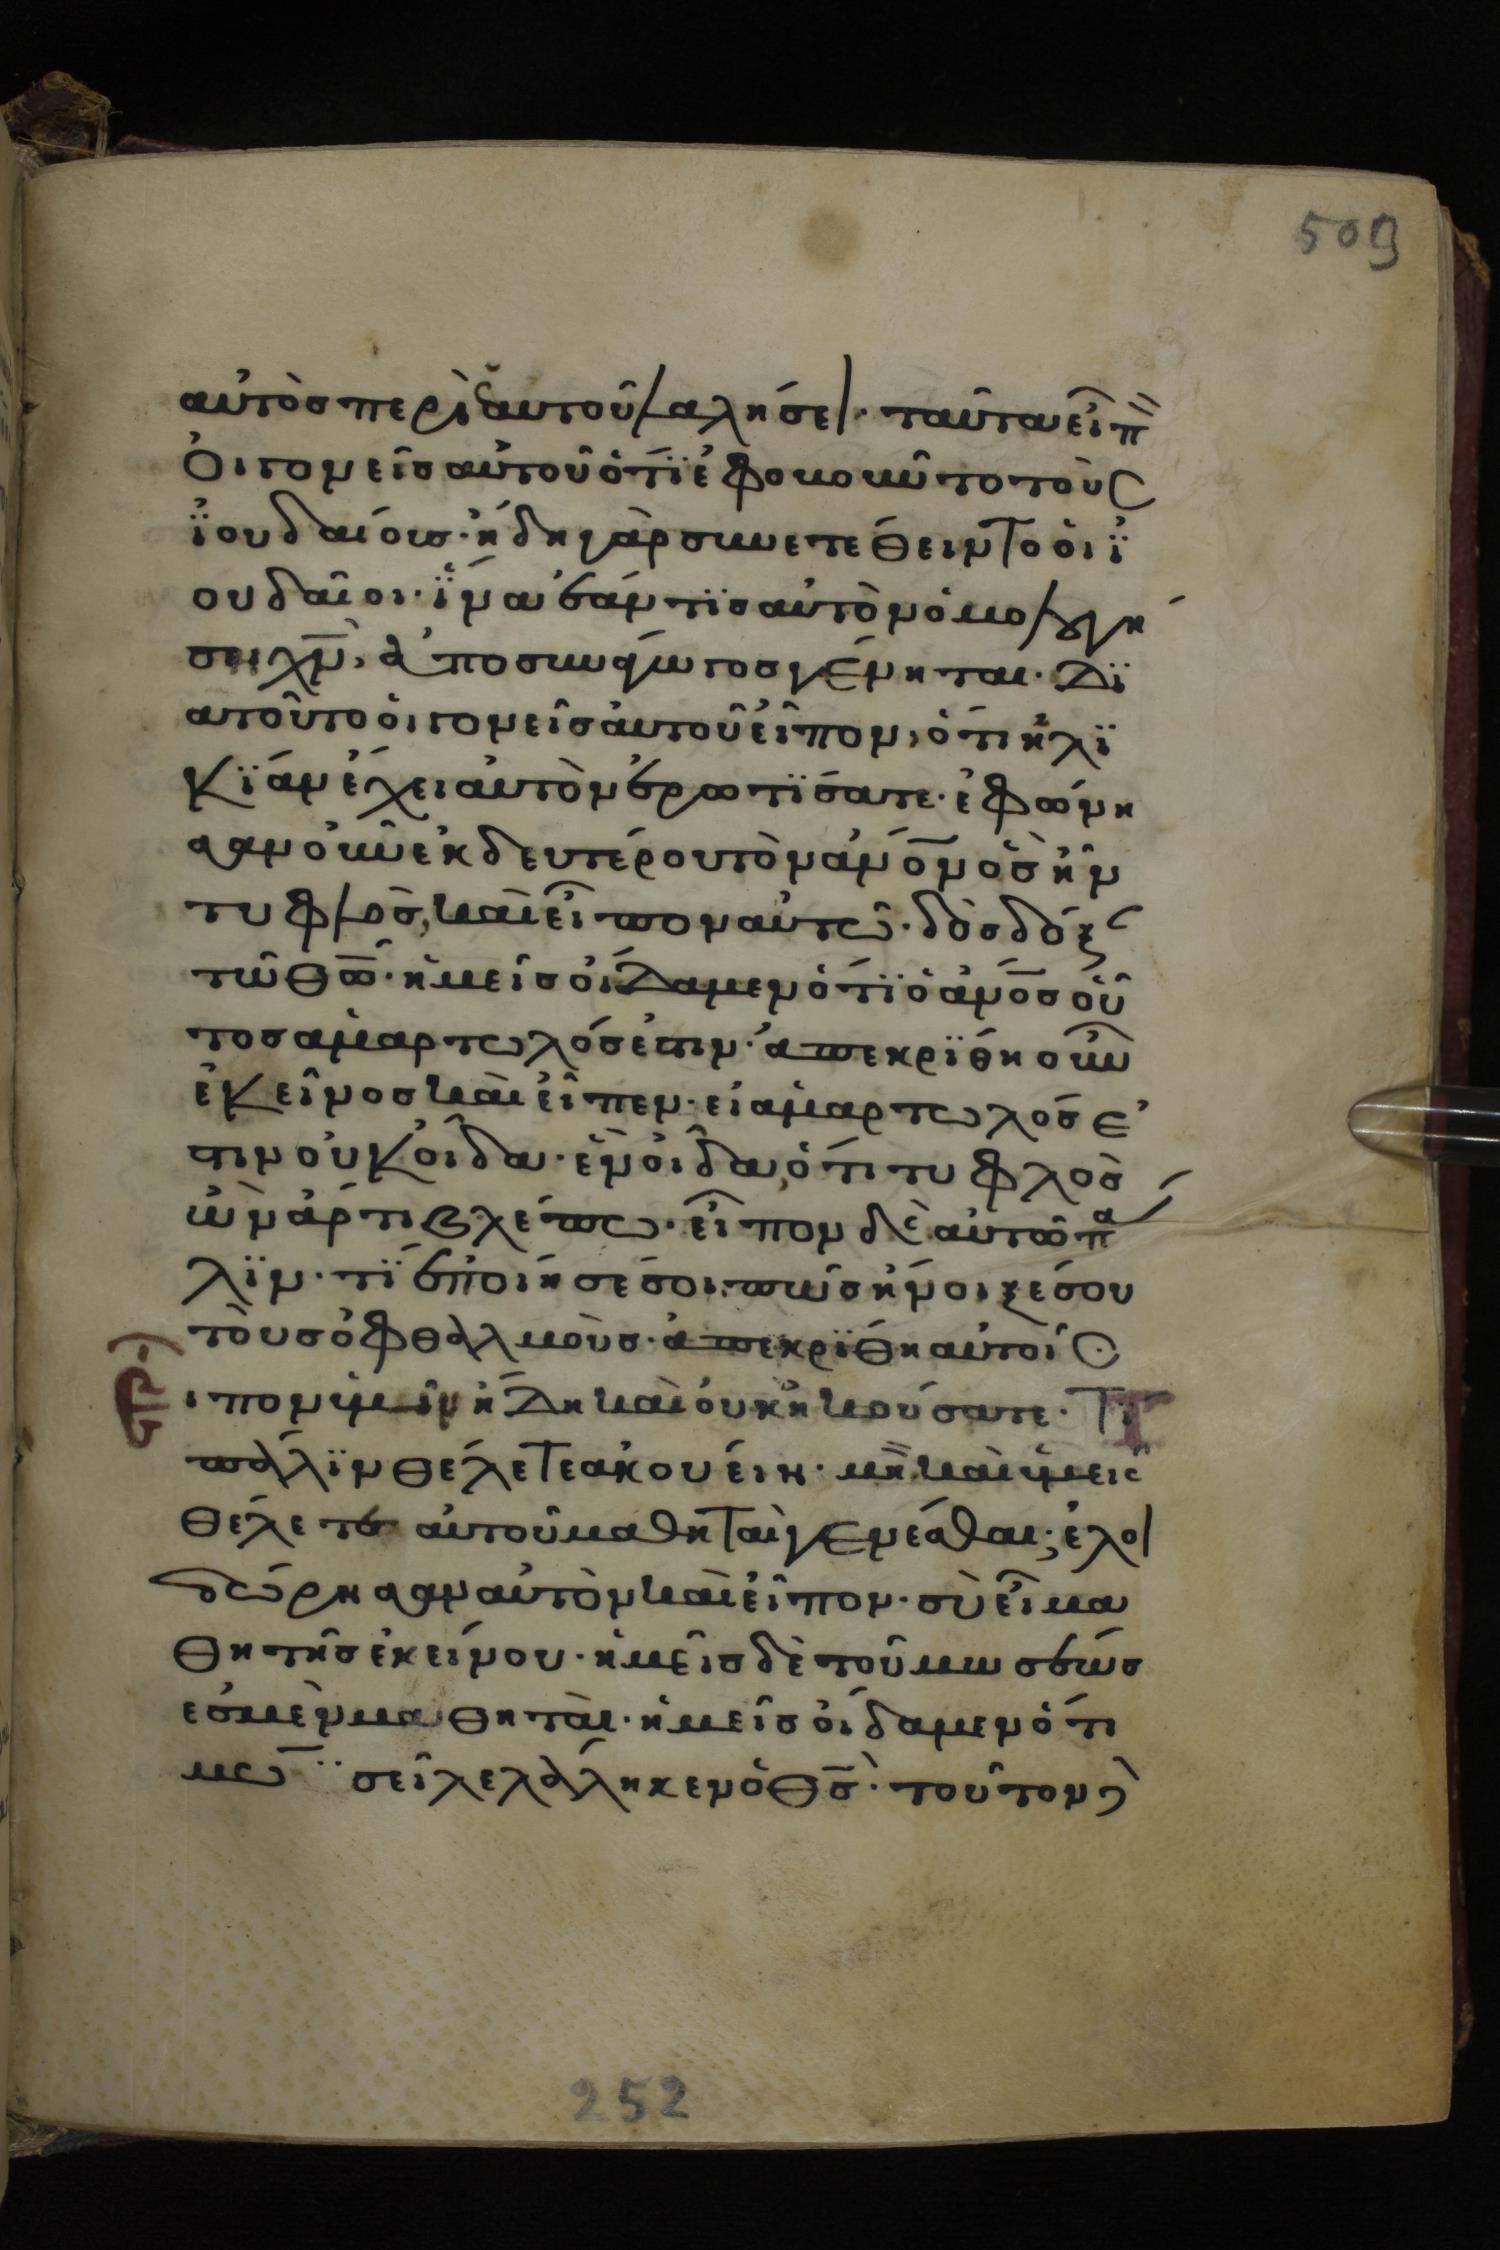 509
αὐτὸσ περὶ ἑαυτοῦ λαλήσει· ταῦτα εἶπ
ὁι γονεῖσ αὐτοῦ ὅτϊ ἐφοβοῦντο τοὺσ
ϊουδαίουσ· ἤδη γὰρ συνετέθειντο ὁι ϊ
ουδαῖοι· ἵ̈να ἐάν τϊσ αὐτὸν ὁμολογή
σει χν̅, ἀποσυνάγωγοσ γένηται· δϊ
ατοῦτο ὁι γονεῖσ ἀυτοῦ εἶπον, ὅτι ἡλϊ
κΐαν ἔχει αὐτὸν ἐρωτϊσατε· ἐφώνη
σαν οὖν ἐκ δευτέρου τὸν αν̅ον ὃσ ἦν
τυφλὸσ, καὶ εἶπον αὐτῶ· δὸσ δόξ
τῶ θω̅· ἡμεῖσ οἴδαμεν ὅτϊ ὁ αν̅οσ οὗ
τοσ ἁμαρτωλόσ ἐστιν· ἀπεκρϊθη οὖν
ἐκεῖνοσ καὶ εἶπεν· εἰ ἁμαρτωλόσ ἐ
στιν οὐκ οἶδα· ἓν οἶδα, ὅτι τυφλὸσ
ὢν ἄρτι βλέπω· εἶπον δὲ αὐτῶ πά
λϊν· τΐ ἐποίησέ σοι, πῶσ ἤνοιξέ σου
τοὺσ ὀφθαλμοὺσ· ἀπεκρΐθη αὐτοῖσ·
ιπον ὑμῖν ἤδη καὶ οὐκ ἠκούσατε· Τί
πάλϊν θέλετε ἀκούειν· μὴ καὶ ὑμεῖσ
θέλετε αὐτοῦ μαθηταὶ γενέσθαι; ἐλοι
δώρησαν αὐτὸν καὶ εἶπον· σὺ εἶ μα
θητὴσ ἐκείνου· ἡμεῖσ δὲ τοῦ μωσέωσ
ἐσμὲν μαθηταὶ· ἡμεῖσ οἴδαμεν ὅτι
μω ϋσεῖ λελάληκεν ὁ θσ̅· τοῦτον δὲ
252